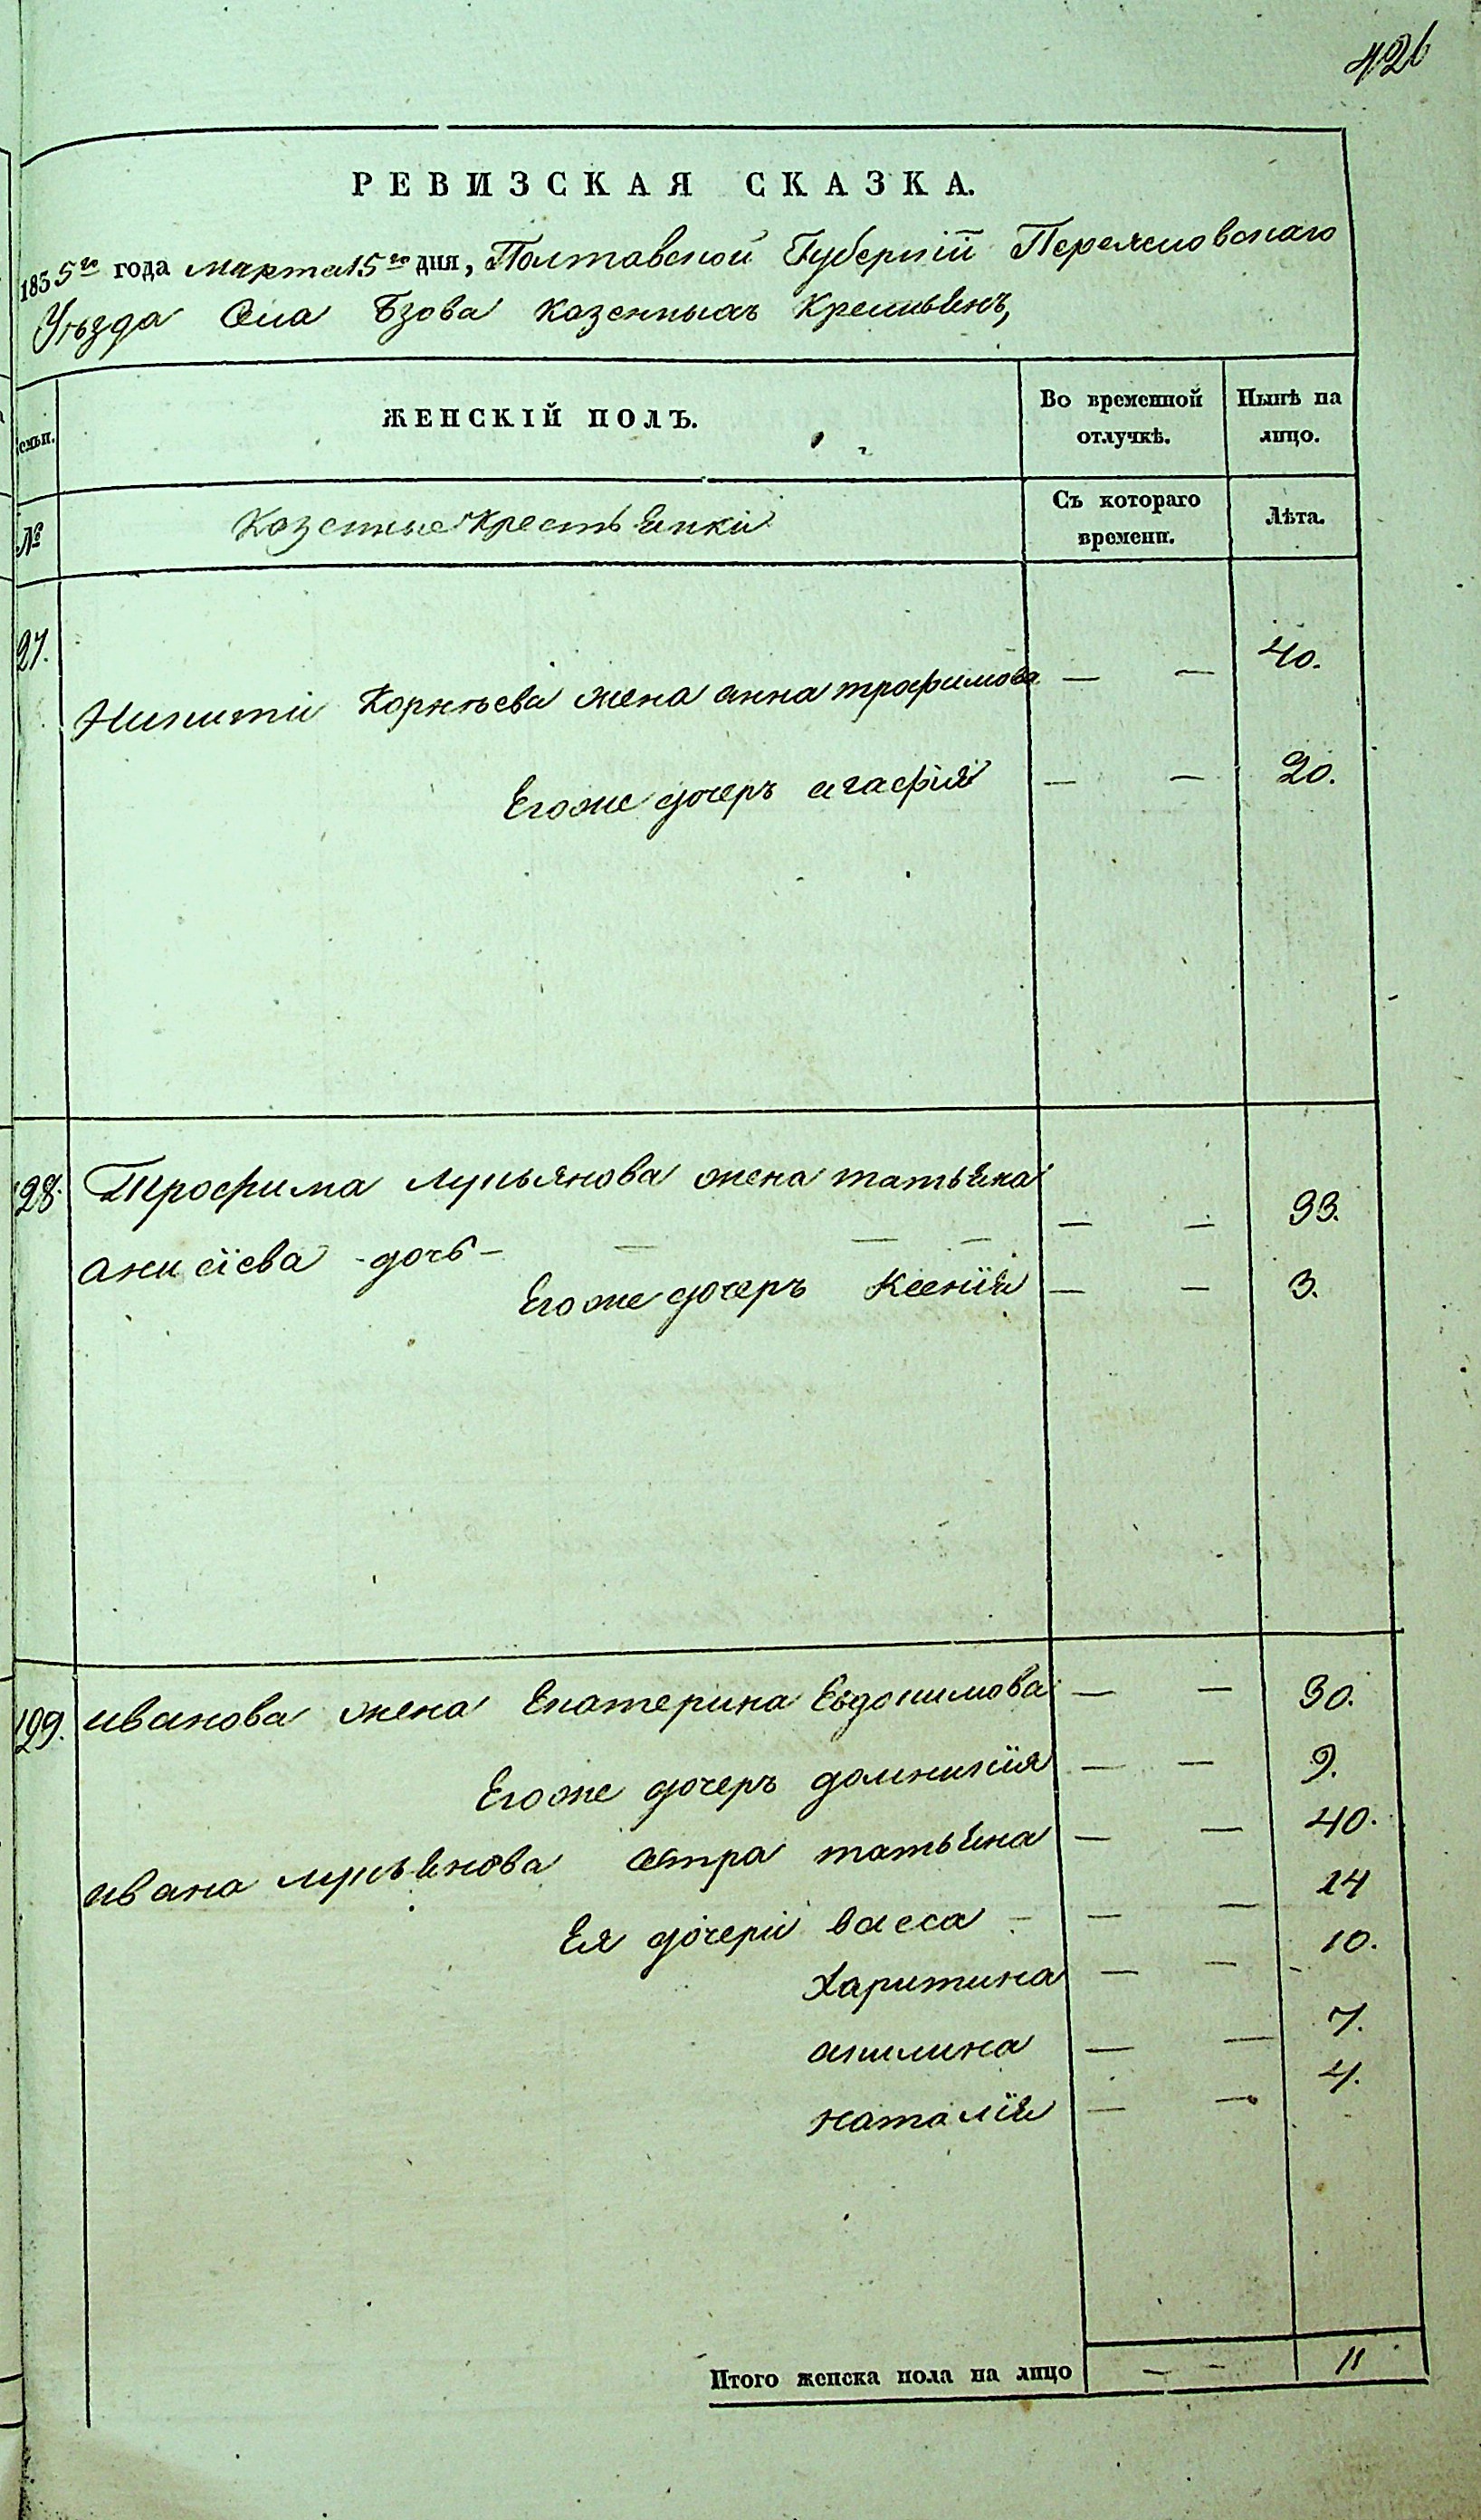 426
РЕВИЗСКАЯ СКАЗКА.
1855го года марта 15го дня, Полтавской Губерніи Переясловскаго
Уѣзда Села Бзова казенныхъ Крестьянъ,
ЖЕНСКІЙ ПОЛЪ.
Во временной отлучкѣ.
Нынѣ на лицо.
семьи.
№
Казенные Крестьянки
Съ котораго времени.
Лѣта.
27.
Никити Корнѣева жена анна трофимова — — 40.
Егоже дочеръ агафія — — 20.
128. Трофима лукьянова жена татьяна
анисіева - дочь - — — — — — 33.
Егоже дочеръ Ксенія — — 3.
129. иванова жена Екатерина Евдокимова — — 30.
Егоже дочеръ домникія — — 9.
ивана лукьянова сестра татьяна — — 40.
Ея дочери васса — — 14
Харитина — — 10.
акилина — — 7.
наталія — — 4.
Итого женска пола на лицо — — 11